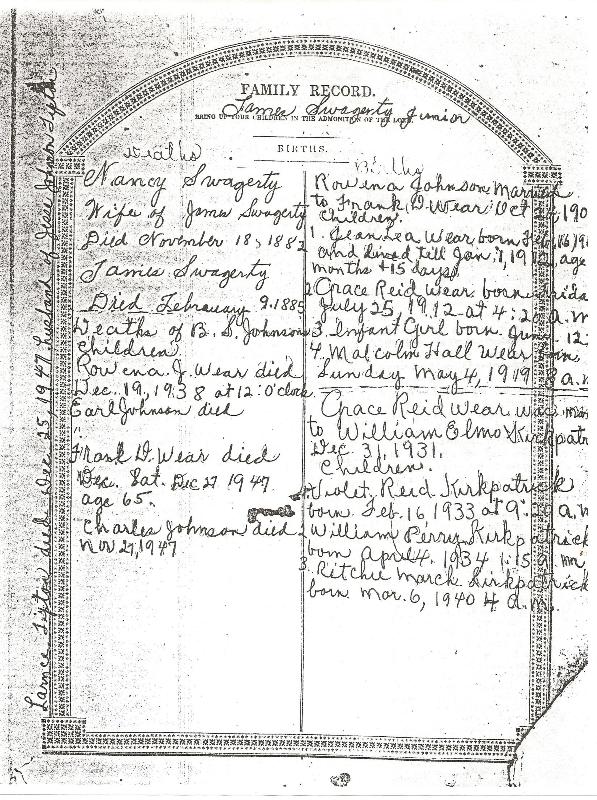 FAMILY RECORD.
James Swagerty Junior
BRING UP YOUR CHILDREN IN THE ADMONITION OF THE LORD.
BIRTHS.
Deaths
Nancy Swagerty
Wife of James Swagerty
Died November 18, 1882
James Swagerty
Died Februaury 9. 1885
Deaths of B. S. Johnsons
Children
Rowena J. Wear died
Dec. 19, 1938 at 12: O'clock
Earl Johnson died
Frank D. Wear died
Dec. Sat. Dec 27 1947
age 65.
Charles Johnson died
Nov 27, 1947
Births
Rowena Johnson Married
to Frank D. Wear Oct 190
Children.
1. Jean Lea Wear born Feb. 16, 191
and lived till Jan. 1, 191 age
months + 15 days.
2 Grace Reid Wear born Frida
July 25, 1912 at 4:2 a.m
3. Infant Girl born June 12
4. Malcolm Hall Wear born
Sunday May 4, 1919 8 a.m
Grace Reid Wear was
to William Elmo Kirkpatr
Dec. 31, 1931.
Children.
Violet Reid Kirkpatrick
born Feb. 16 1933 at 9: a.m
2 William Perry Kirkpatrick
born April 4. 1934 1:15 a.m,
3. Ritchie March Kirkpatrick
born Mar. 6, 1940 4 a.m.
Tipton died Dec. 25, 1947 husband of Jessie Johnson Tipton